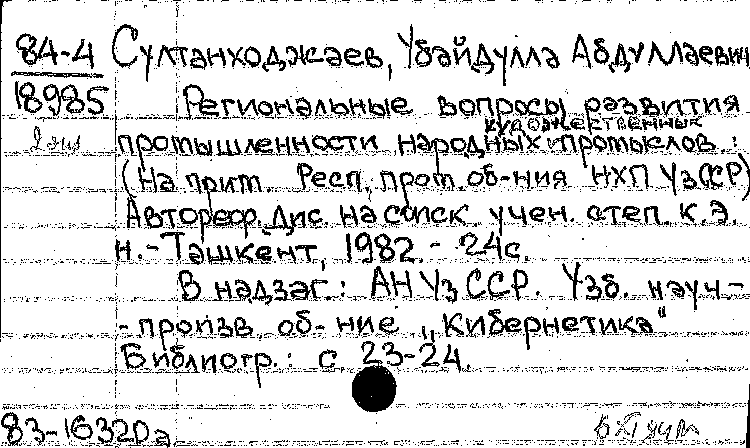 84-4 Султанходжаев, Убайдулла Абдуллаевич
18985 Региональные вопросы развития
2 экз художественных
промышленности народных промыслов. :
(На прим. Респ. пром. об-ния НХП УзССР)
Автореф. дис. на соиск. учен. степ. к. э.
н. - Ташкент, 1982. - 24с.
В надзаг. : АН УзССР. Узб. науч.-
-произв. об-ние „Кибернетика“
Библиогр. : с. 23-24.
83-16320а